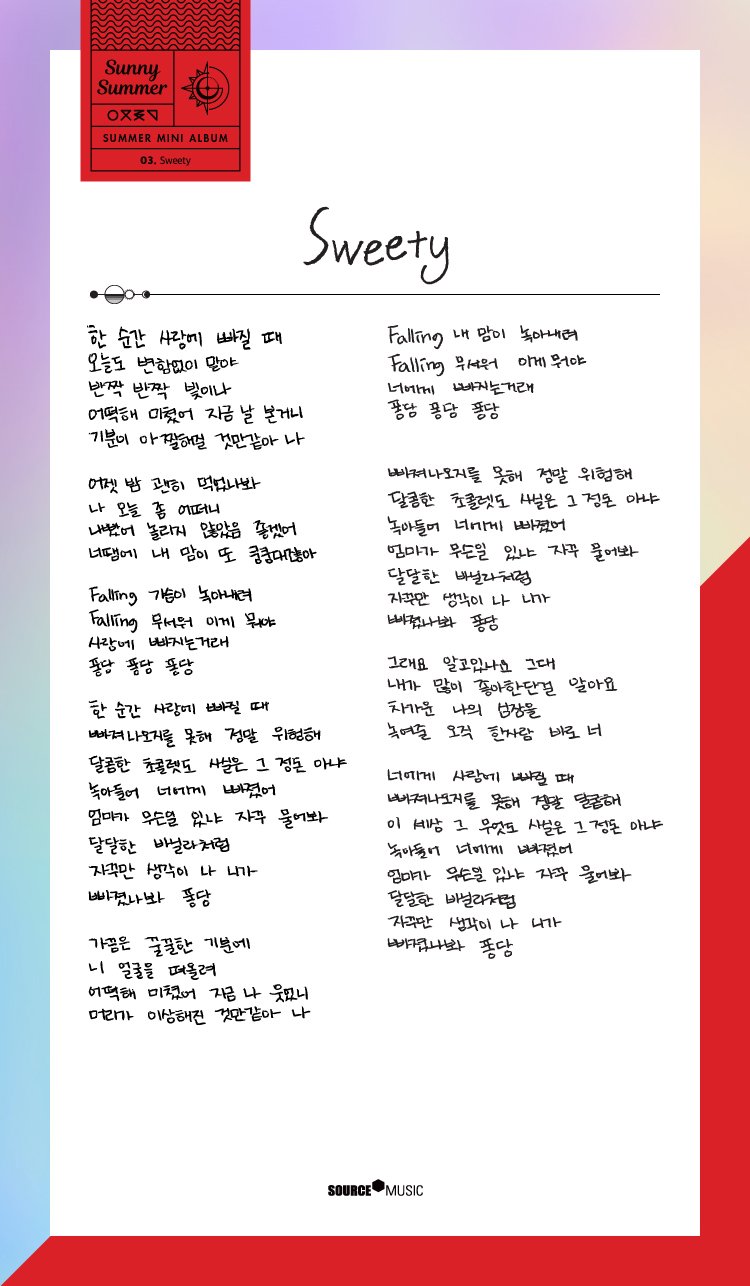 Sunny
Summer
SUMMER MINI ALBUM
03. Sweety
Sweety
한 순간 사랑에 빠질 때
오늘도 변함없이 맑아
반짝 반짝 빛이나
어떡해 미쳤어 지금 날 본거니
기분이 아찔해질 것만같아 나
어젯 밤 괜히 먹었나봐
나 오늘 좀 어떠니
나빴어 놀라지 않았음 좋겠어
너땜에 내 맘이 또 쿵쿵대잖아
Falling 가슴이 녹아내려
Falling 무서워 이게 뭐야
사랑에 빠지는거래
퐁당 퐁당 퐁당
한 순간 사랑에 빠질 때
빠져나오지를 못해 정말 위험해
달콤한 초콜렛도 사실은 그 정돈 아냐
녹아들어 너에게 빠졌어
엄마가 무슨일 있냐 자꾸 물어봐
달달한 바닐라처럼
자꾸만 생각이 나 니가
빠졌나봐 퐁당
가끔은 꿀꿀한 기분에
니 얼굴을 떠올려
어떡해 미쳤어 지금 나 웃었니
머리가 이상해진 것만같아 나
Falling 내 맘이 녹아내려
Falling 무서워 이게 뭐야
너에게 빠지는거래
퐁당 퐁당 퐁당
빠져나오지를 못해 정말 위험해
달콤한 초콜렛도 사실은 그 정돈 아냐
녹아들어 너에게 빠졌어
엄마가 무슨일 있냐 자꾸 물어봐
달달한 바닐라처럼
자꾸만 생각이 나 니가
빠졌나봐 퐁당
그래요 알고있나요 그대
내가 많이 좋아한단걸 알아요
차가운 나의 심장을
녹여줄 오직 한사람 바로 너
너에게 사랑에 빠질 때
빠져나오지를 못해 정말 달콤해
이 세상 그 무엇도 사실은 그 정돈 아냐
녹아들어 너에게 빠졌어
엄마가 무슨일 있냐 자꾸 물어봐
달달한 바닐라처럼
자꾸만 생각이 나 니가
빠졌나봐 퐁당
SOURCE MUSIC